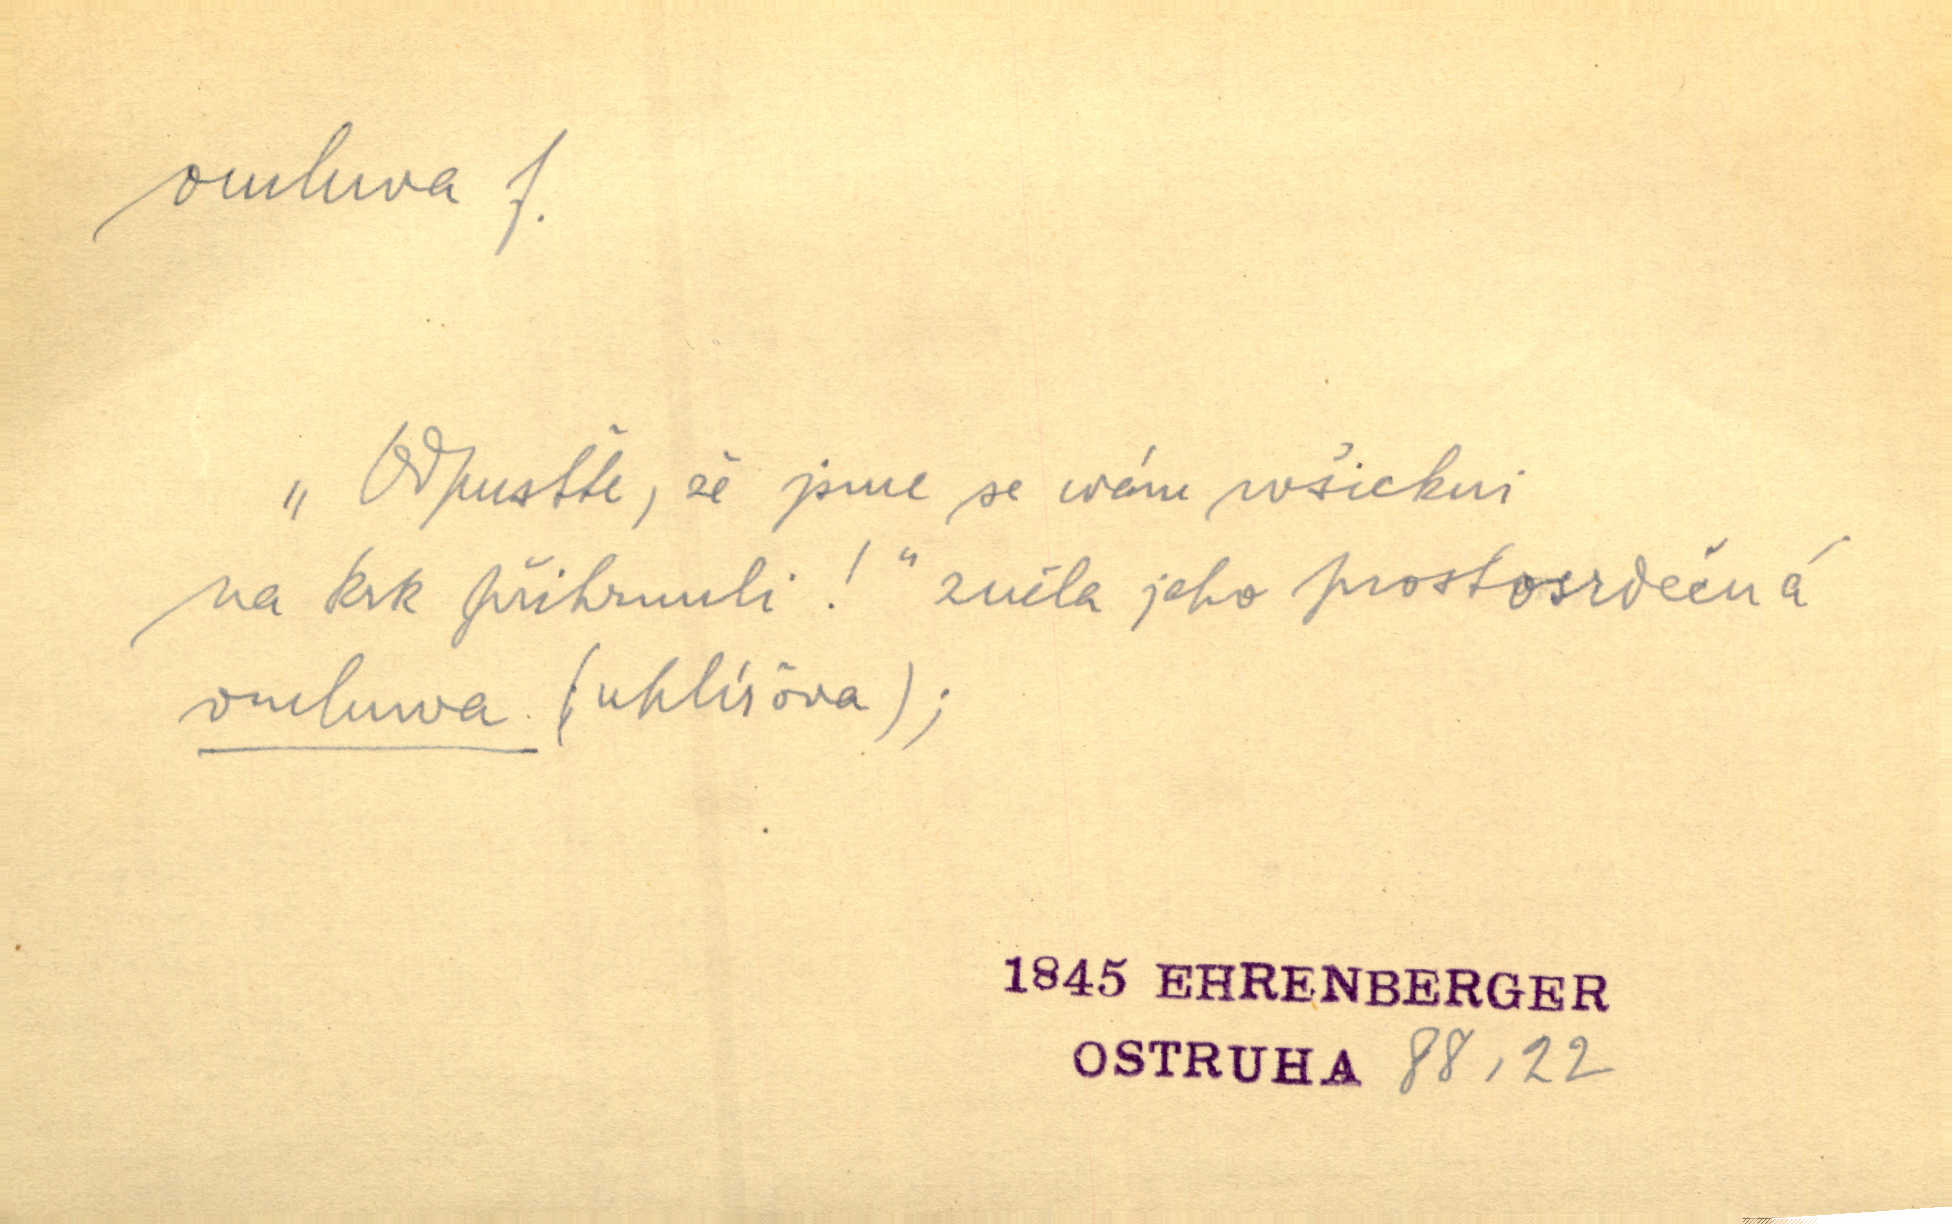 omluva f.
„Odpusťte, že jsme se wám wšickni
na krk přihrnuli!“ zněla jeho prostosrdečná
omluwa (uhlířova);
1845 EHRENBERGER
OSTRUHA 88,22